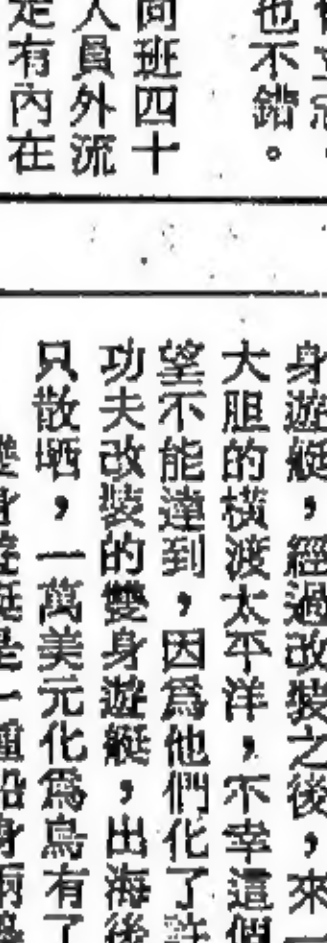 也不錯。
同班四十
人員外流
定有內在
身遊艇，經過改裝之後，來一
大胆的橫渡太平洋，不幸這個
望不能達到，因爲他們化了許
功夫改裝的雙身遊艇，出海後
只散晒，一萬美元化爲烏有了
雙身遊艇是一種船身兩